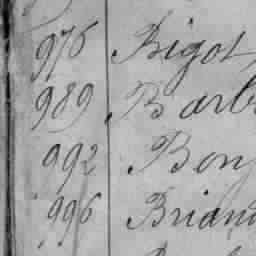 976 Bigot
989 Barb
992 Bon
996 Briand